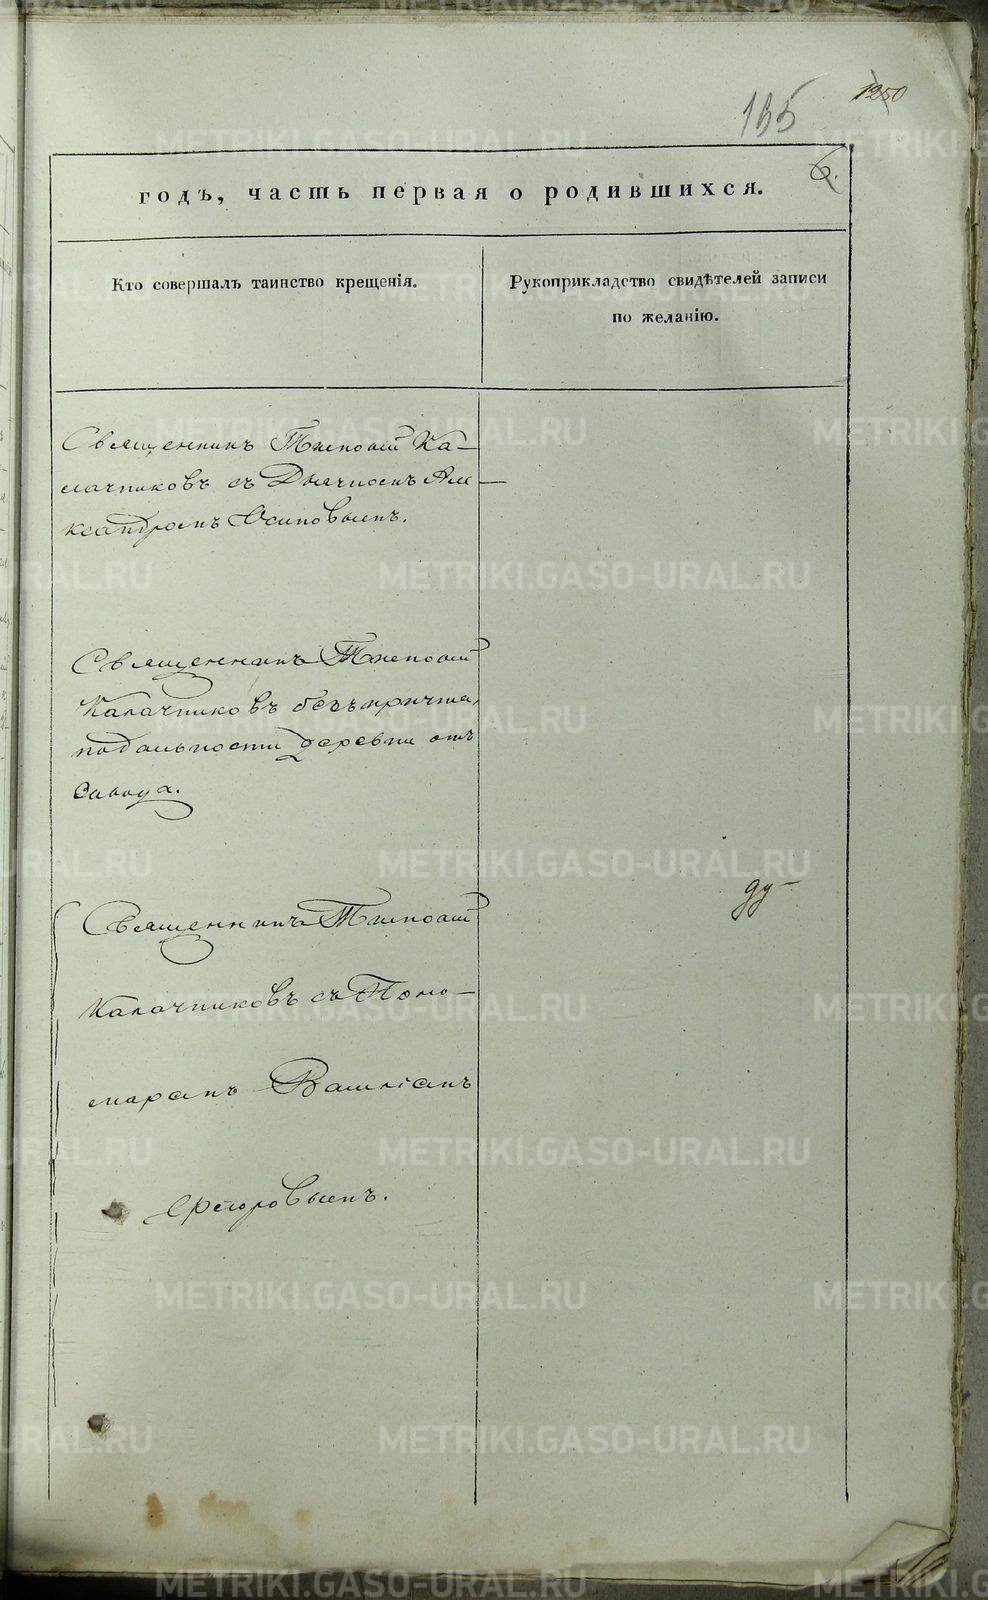 155
1250
6.
годъ, часть первая о родившихся.
Кто совершалъ таинство крещенія.
Рукоприкладство свидѣтелей записи
по желанію.
Священникъ Тимофей Ка-
лачниковъ съ Дьячкомъ Але-
ксандромъ Осиповымъ.
Священникъ Тимофей
Калачниковъ безъ причта,
подальности деревни отъ
завода.
Священникъ Тимофей
Калачниковъ съ Поно-
маремъ
METRIKI.GASO-URAL.RU